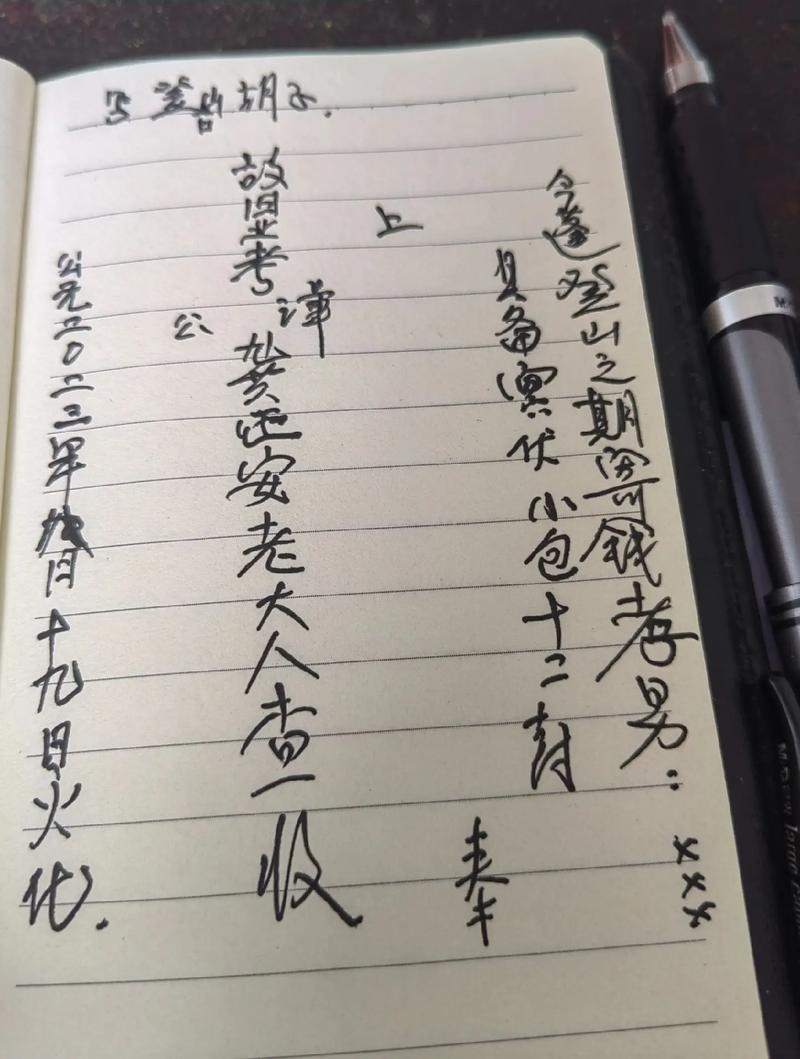 写 登山 胡子.
今逢登山之期寄钱孝男: xxx
具备冥伏小包十二封
上 奉
故显考黄迊安老大人查收
公 讳
公元二0二三年 月十九日火化.